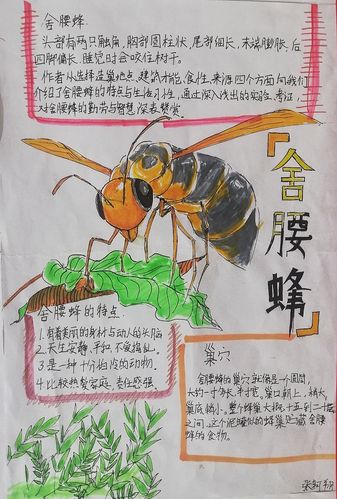 舍腰蜂:
头部有两只触角,胸部圆柱状,尾部细长,末端膨胀,后
四脚偏长。睡觉时会咬住树干。
作者从选择造巢地点、建筑才能、食性、来源四个方面向我们
介绍了舍腰蜂的特点与生活习性,通过深入浅出的实验、考证,
对舍腰蜂的勤劳与智慧,深表赞赏。
「舍腰蜂」
舍腰蜂的特点
1.有着美丽的身材与动人的头脑
2.天生安静、平和、不爱捣乱。
3.是一种十分怕冷的动物
4.比较热爱家庭、责任感强。
巢穴
舍腰蜂的巢穴就像是一个圆筒,
大约一寸多长,半寸宽。巢口朝上,稍大,
巢底稍小。整个蜂巢大概十五到二十层
之间。这个泥罐似的蜂巢贮藏舍腰
蜂的食物。